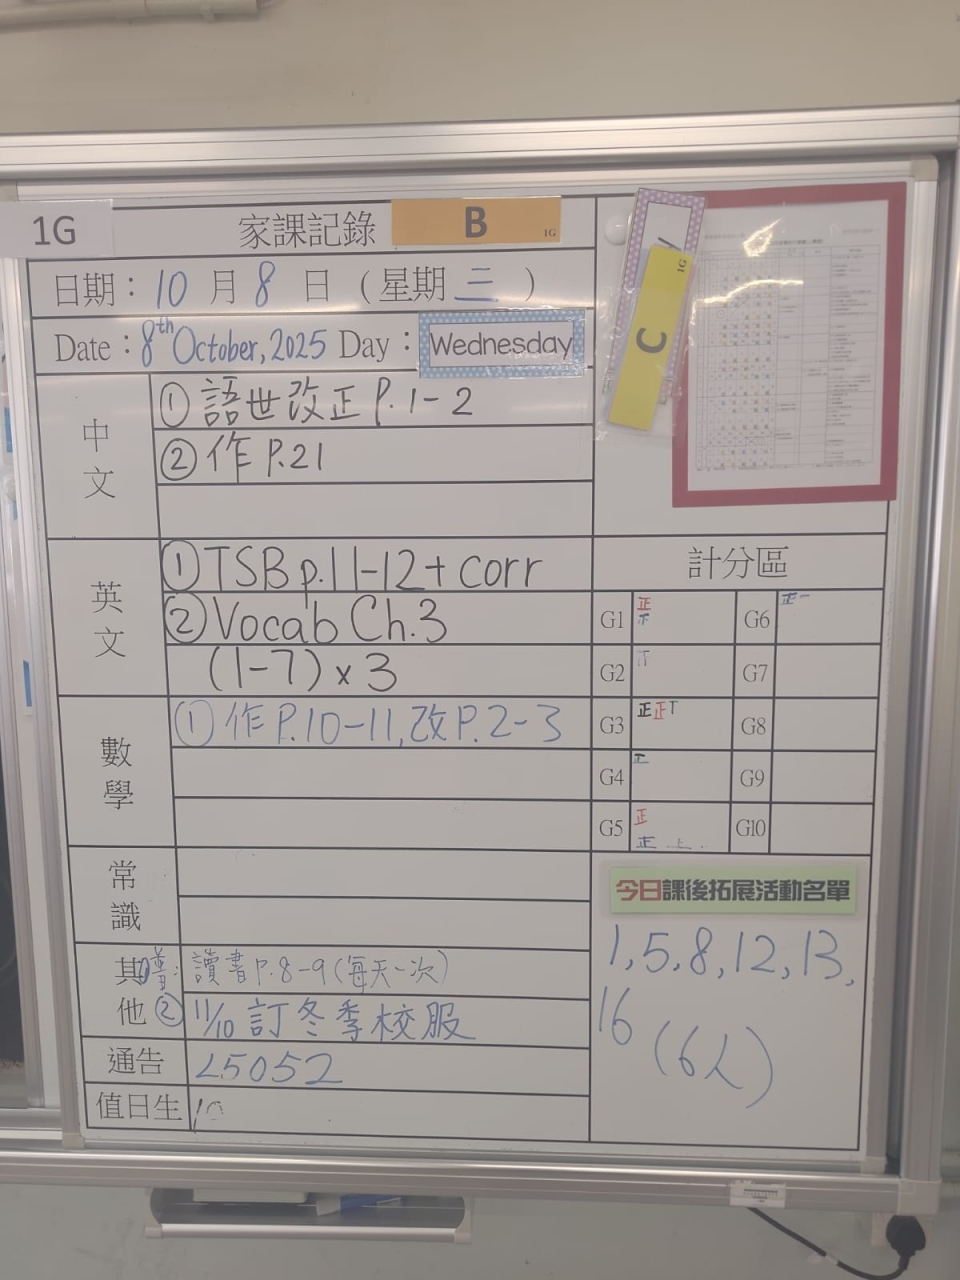 1G
家課記錄
B
1G
日期：10月8日（星期三）
Date：8th October, 2025 Day：Wednesday
C
1G
中文
①語世改正P.1-2
②作P.21
英文
①TSB p.11-12+corr
②Vocab Ch.3
(1-7)×3
數學
①作P.10-11,改P.2-3
常識
其他
普: 讀書P.8-9(每天一次)
② 11/10訂冬季校服
通告
25052
值日生
計分區
G1 正
G6 正一
G2
G7
G3 正正
G8
G4
G9
G5 正
正
G10
今日課後拓展活動名單
1,5,8,12,13,
16
(6人)